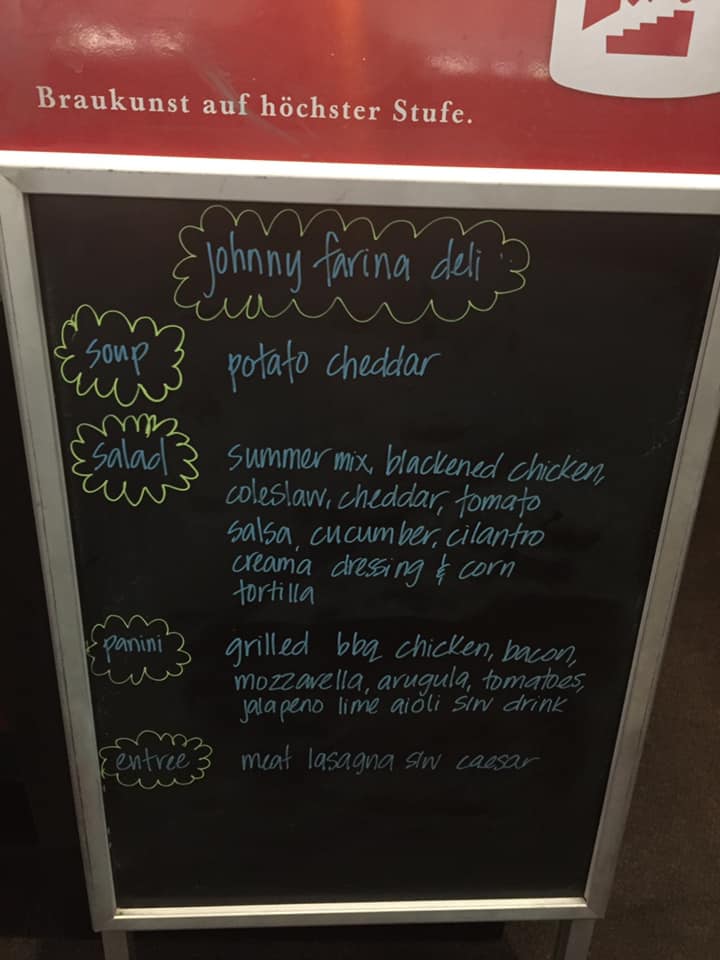 Braukunst auf höchster Stufe.
johnny farina deli
soup
potato cheddar
salad
summer mix, blackened chicken,
coleslaw, cheddar, tomato
salsa, cucumber, cilantro
creama dressing & corn
tortilla
panini
grilled bbq chicken, bacon,
mozzarella, arugula, tomatoes,
jalapeno lime aioli s/w drink
entree
meat lasagna s/w caesar